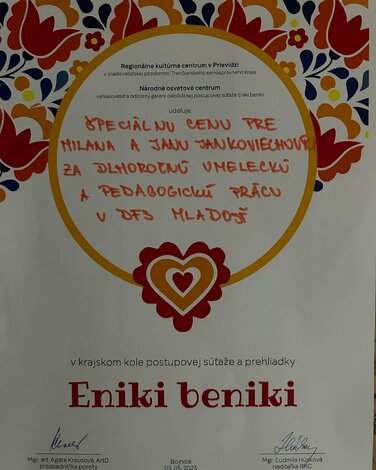 Regionálne kultúrne centrum v Prievidzi
v zriaďovateľskej pôsobnosti Trenčianskeho samosprávneho kraja
Národné osvetové centrum
vyhlasovateľ a odborný garant celoštátnej postupovej súťaže Eniki Beniki
udeľuje
ŠPECIÁLNU CENU PRE
MILANA A JANU JANKOVIECHOVÝCH
ZA DLHOROČNÚ UMELECKÚ
A PEDAGOGICKÚ PRÁCU
V DFS MLADOSŤ
v krajskom kole postupovej súťaže a prehliadky
Eniki beniki
Mgr. art. Agáta Krausová, ArtD.
predsedníčka poroty
Bojnice
03. 05. 2025
Mgr. Ľudmila Húsková
riaditeľka RKC